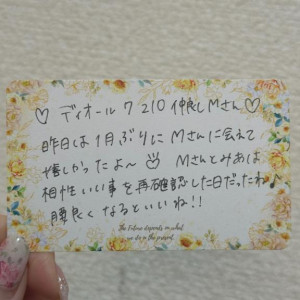 ♡ ディオール 7 210 仲良しMさん♡
昨日は1月ぶりにMさんに会えて
嬉しかったよ〜 Mさんとみあは
相性いい事を再確認した日だったね♪
腰良くなるといいね!!
the Future depends on what
we do in the present.